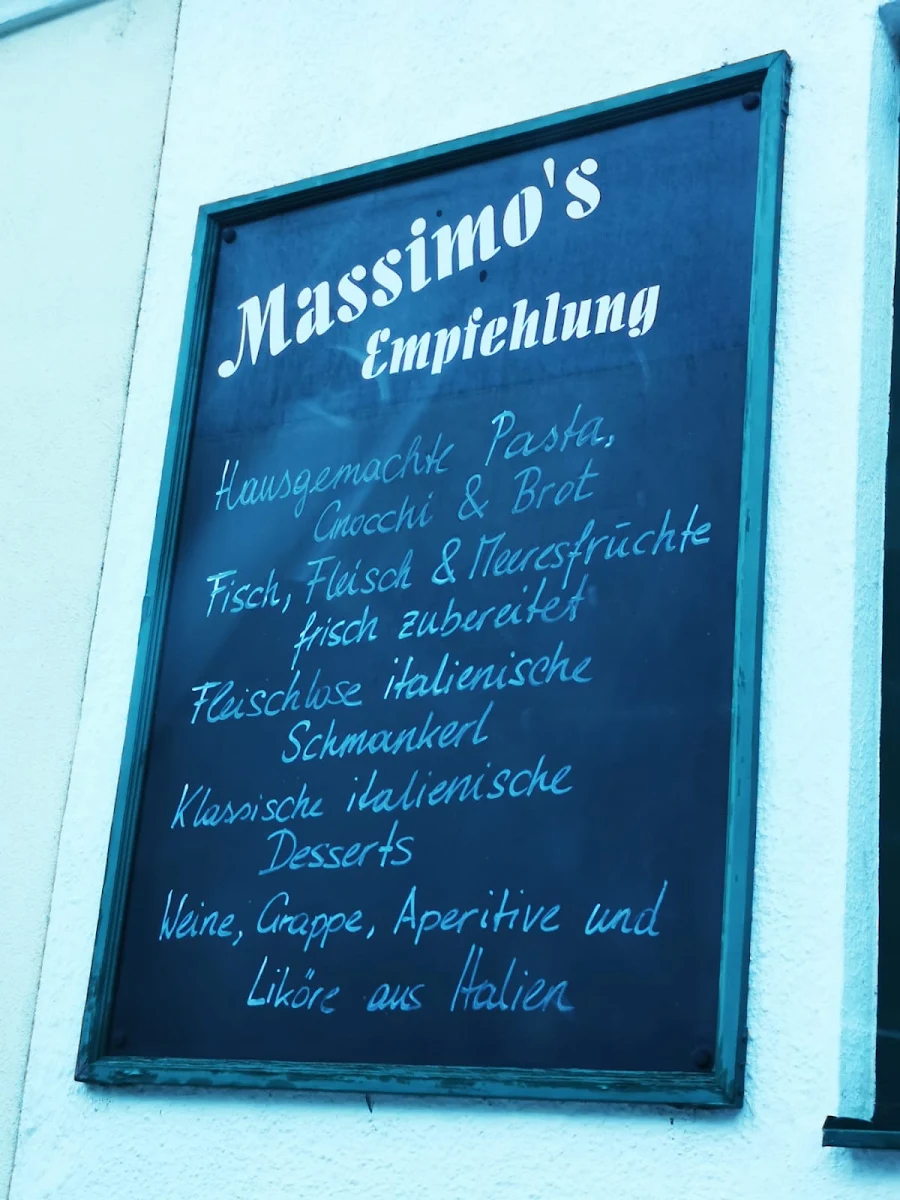 Massimo's
Empfehlung
Hausgemachte Pasta,
Gnocchi & Brot
Fisch, Fleisch & Meeresfrüchte
frisch zubereitet
Fleischlose italienische
Schmankerl
Klassische italienische
Desserts
Weine, Grappe, Aperitive und
Liköre aus Italien